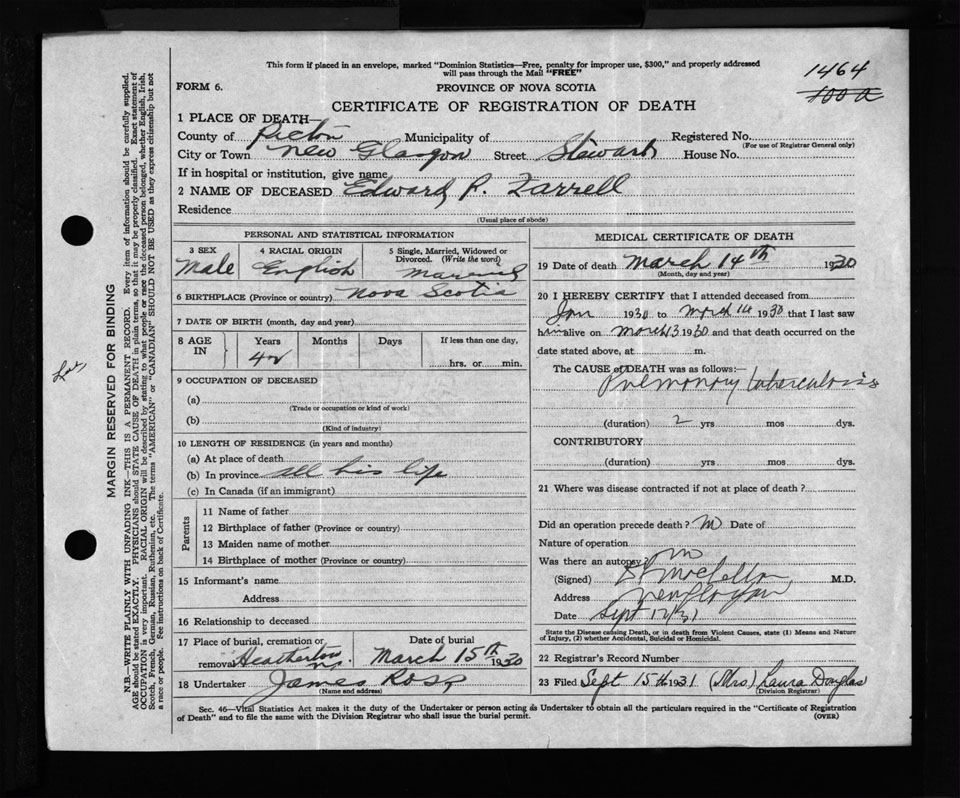 This form if placed in an envelope, marked "Dominion Statistics—Free, penalty for improper use, $300," and properly addressed
will pass through the Mail "FREE"
1464
100 a
FORM 6.
PROVINCE OF NOVA SCOTIA
CERTIFICATE OF REGISTRATION OF DEATH
1 PLACE OF DEATH
County of Pictou Municipality of Registered No.
(For use of Registrar General only)
City or Town New Glasgow Street Stewart House No.
If in hospital or institution, give name
2 NAME OF DECEASED Edward P. Farrell
Residence
(Usual place of abode)
PERSONAL AND STATISTICAL INFORMATION
3 SEX 4 RACIAL ORIGIN 5 Single, Married, Widowed or
Divorced. (Write the word)
Male English Married
6 BIRTHPLACE (Province or country) Nova Scotia
7 DATE OF BIRTH (month, day and year)
8 AGE IN Years Months Days If less than one day,
42 hrs. or min.
9 OCCUPATION OF DECEASED
(a)
(Trade or occupation or kind of work)
(b)
(Kind of industry)
10 LENGTH OF RESIDENCE (in years and months)
(a) At place of death
(b) In province all his life
(c) In Canada (if an immigrant)
Parents
11 Name of father
12 Birthplace of father (Province or country)
13 Maiden name of mother
14 Birthplace of mother (Province or country)
15 Informant's name
Address
16 Relationship to deceased
17 Place of burial, cremation or Date of burial
removal Heatherton N.S. March 15th 1930
18 Undertaker James Ross
(Name and address)
MEDICAL CERTIFICATE OF DEATH
19 Date of death March 14th 1930
(Month, day and year)
20 I HEREBY CERTIFY that I attended deceased from
Jan 1930 to March 14 1930 that I last saw
him alive on March 13 1930 and that death occurred on the
date stated above, at m.
The CAUSE of DEATH was as follows:
Pulmonary tuberculosis
(duration) 2 yrs mos dys.
CONTRIBUTORY
(duration) yrs. mos. dys.
21 Where was disease contracted if not at place of death?
Did an operation precede death? no Date of
Nature of operation
Was there an autopsy no
(Signed) M.D.
Address New Glasgow
Date Sept 12/31
State the Disease causing Death, or in death from Violent Causes, state (1) Means and Nature
of Injury, (2) whether Accidental, Suicidal or Homicidal.
22 Registrar's Record Number
23 Filed Sept 15th 1931 (Mrs) Laura Douglas
(Division Registrar)
Sec. 46—Vital Statistics Act makes it the duty of the Undertaker or person acting as Undertaker to obtain all the particulars required in the "Certificate of Registration
of Death" and to file the same with the Division Registrar who shall issue the burial permit.
(OVER)
MARGIN RESERVED FOR BINDING
N.B.—WRITE PLAINLY WITH UNFADING INK—THIS IS A PERMANENT RECORD. Every item of information should be carefully supplied.
AGE should be stated EXACTLY. PHYSICIANS should STATE CAUSE OF DEATH in plain terms, so that it may be properly classified. Exact statement of
OCCUPATION is very important. RACIAL ORIGIN will be described by stating to what people or race the deceased person belonged, whether English, Irish,
Scotch, French, German, Russian, Ruthenian, etc. The terms "AMERICAN" or "CANADIAN" SHOULD NOT BE USED as they express citizenship but not
a race or people. See instructions on back of Certificate.